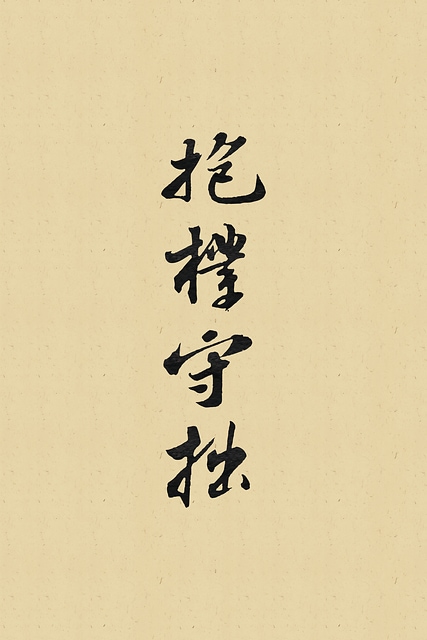 抱樸守拙